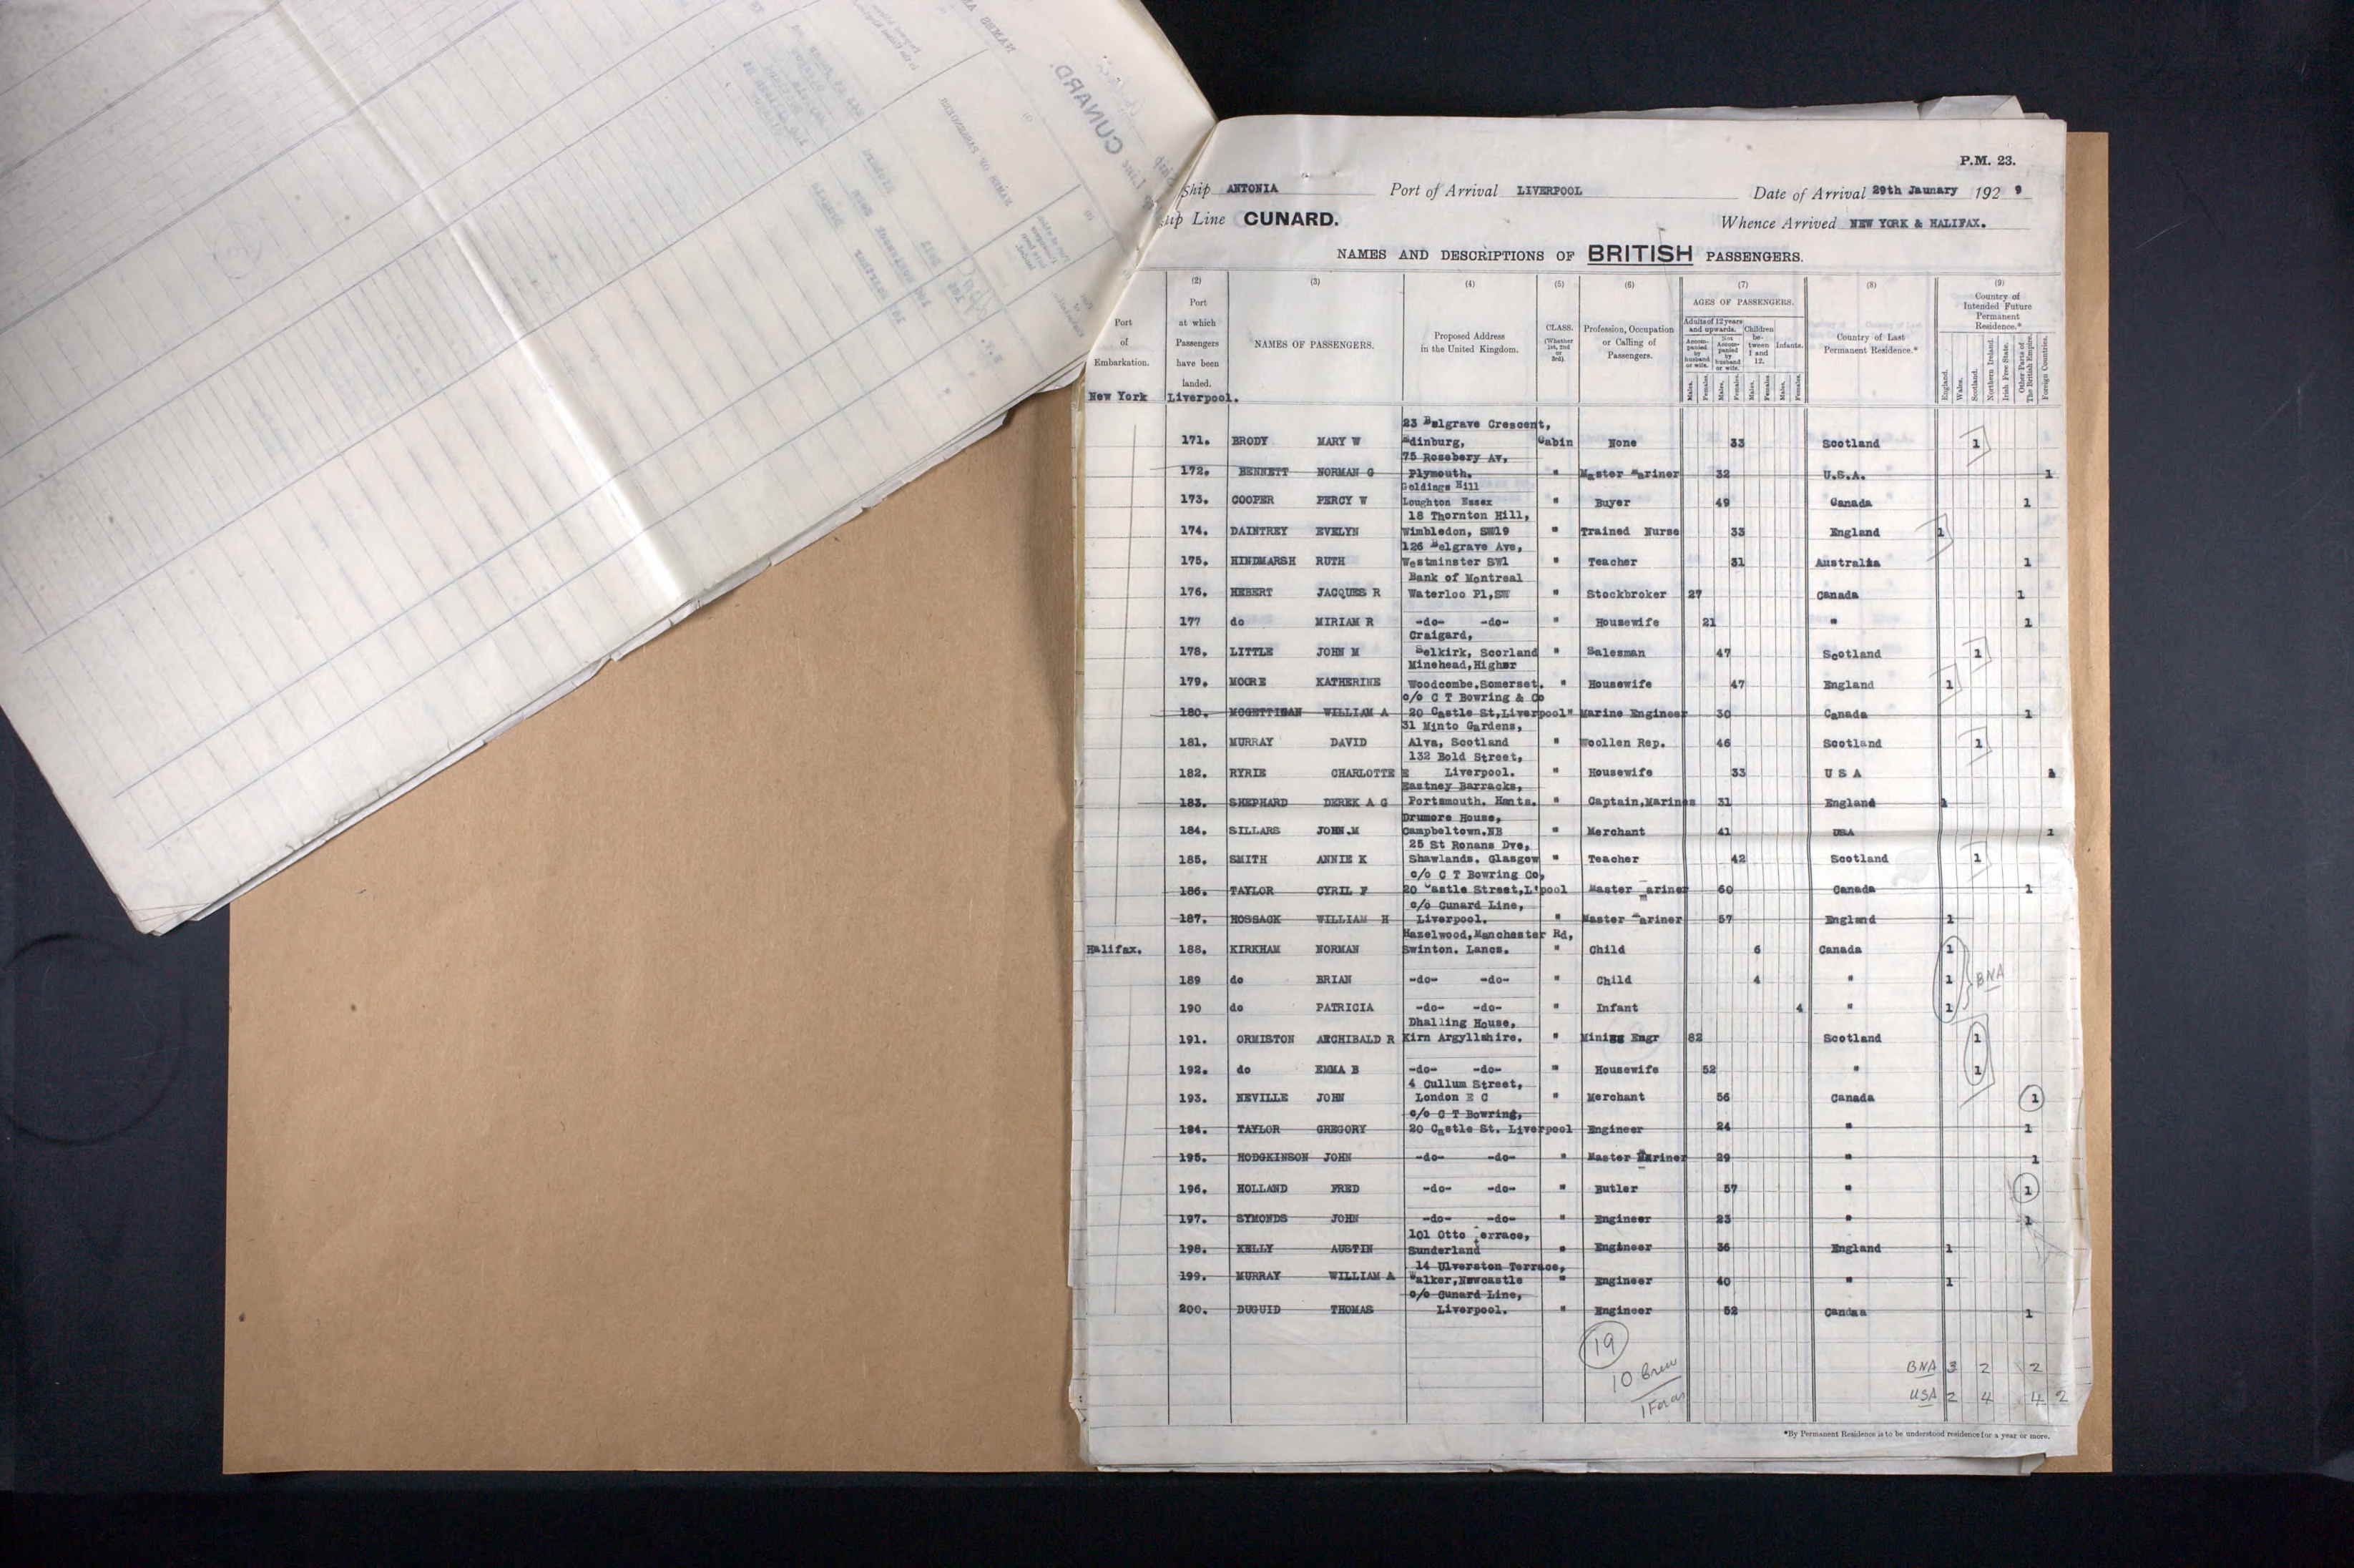 P.M. 23.
Ship ANTONIA Port of Arrival LIVERPOOL Date of Arrival 29th Jaunary 192 9
Line CUNARD. Whence Arrived NEW YORK & HALIFAX.
NAMES AND DESCRIPTIONS OF BRITISH PASSENGERS.
(2) (3) (4) (5) (6) (7) (8) (9)
Port of Embarkation.
Port at which Passengers have been landed.
NAMES OF PASSENGERS.
Proposed Address in the United Kingdom.
CLASS. (Whether 1st, 2nd or 3rd).
Profession, Occupation or Calling of Passengers.
AGES OF PASSENGERS.
Adults of 12 years and upwards.
Accompanied by husband or wife.
Not Accompanied by husband or wife.
Children between 1 and 12.
Infants.
Males. Females. Males. Females. Males. Females. Males. Females.
Country of Last Permanent Residence.*
Country of Intended Future Permanent Residence.*
England. Wales. Scotland. Northern Ireland. Irish Free State. Other Parts of The British Empire. Foreign Countries.
New York Liverpool.
23 Belgrave Crescent,
171. BRODY MARY W Edinburg, Cabin None 33 Scotland 1
75 Rosebery Av,
172. BENNETT NORMAN G Plymouth. " Master Mariner 32 U.S.A. 1
Goldings Hill
173. COOPER PERCY W Loughton Essex " Buyer 49 Canada 1
18 Thornton Hill,
174. DAINTREY EVELYN Wimbledon, SW19 " Trained Nurse 33 England 1
126 Belgrave Ave,
175. HINDMARSH RUTH Westminster SW1 " Teacher 31 Australia 1
Bank of Montreal
176. HEBERT JACQUES R Waterloo Pl,SW " Stockbroker 27 Canada 1
177 do MIRIAM R -do- -do- " Housewife 21 " 1
Craigard,
178. LITTLE JOHN M Selkirk, Scorland " Salesman 47 Scotland 1
Minehead,Higher
179. MOORE KATHERINE Woodcombe,Somerset. " Housewife 47 England 1
c/o C T Bowring & Co
180. MCGETTIGAN WILLIAM A 20 Castle St,Liverpool" Marine Engineer 30 Canada 1
31 Minto Gardens,
181. MURRAY DAVID Alva, Scotland " Woollen Rep. 46 Scotland 1
132 Bold Street,
182. RYRIE CHARLOTTE E Liverpool. " Housewife 33 U S A 1
Eastney Barracks,
183. SHEPHARD DEREK A G Portsmouth. Hants. " Captain,Marines 31 England 1
Drumore House,
184. SILLARS JOHN.M Campbeltown.NB " Merchant 41 USA 1
25 St Ronans Dve,
185. SMITH ANNIE K Shawlands. Glasgow " Teacher 42 Scotland 1
c/o C T Bowring Co,
186. TAYLOR CYRIL F 20 Castle Street,L'pool Master mariner 60 Canada 1
c/o Cunard Line,
187. HOSSACK WILLIAM H Liverpool. " Master Mariner 57 England 1
Hazelwood,Manchester Rd,
Halifax. 188. KIRKHAM NORMAN Swinton. Lancs. " Child 6 Canada 1
189 do BRIAN -do- -do- " Child 4 " 1 BNA
190 do PATRICIA -do- -do- " Infant 4 " 1
Dhalling House,
191. ORMISTON ARCHIBALD R Kirn Argyllshire. " Mining Engr 62 Scotland 1
192. do EMMA B -do- -do- " Housewife 52 " 1
4 Cullum Street,
193. NEVILLE JOHN London E C " Merchant 56 Canada 1
c/o C T Bowring,
194. TAYLOR GREGORY 20 Castle St. Liverpool Engineer 24 " 1
195. HODGKINSON JOHN -do- -do- " Master Mariner 29 " 1
196. HOLLAND FRED -do- -do- " Butler 57 " 1
197. SYMONDS JOHN -do- -do- " Engineer 23 " 1
101 Otto terrace,
198. KELLY AUSTIN Sunderland " Engineer 36 England 1
14 Ulverston Terrace,
199. MURRAY WILLIAM A Walker,Newcastle " Engineer 40 " 1
c/o Cunard Line,
200. DUGUID THOMAS Liverpool. " Engineer 52 Candaa 1
19
10 Crew
BNA 3 2 2
USA 2 4 4 2
*By Permanent Residence is to be understood residence for a year or more.